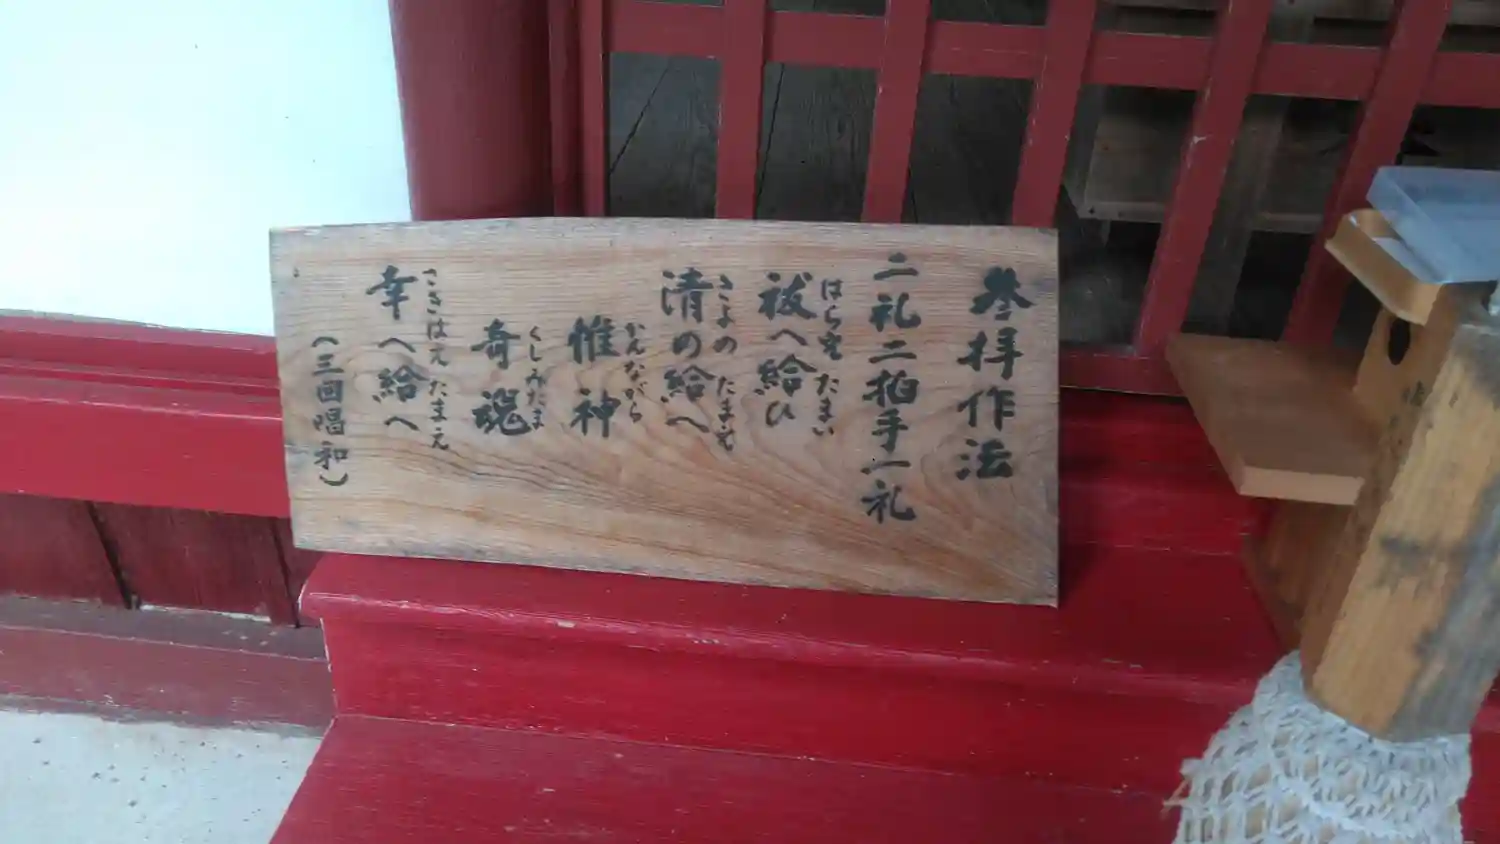 参拝作法
二礼二拍手一礼
はらえ たまい
祓へ給ひ
きよめ たまえ
清め給へ
かんながら
惟神
くしみたま
奇魂
さきはえ たまえ
幸へ給へ
(三回唱和)